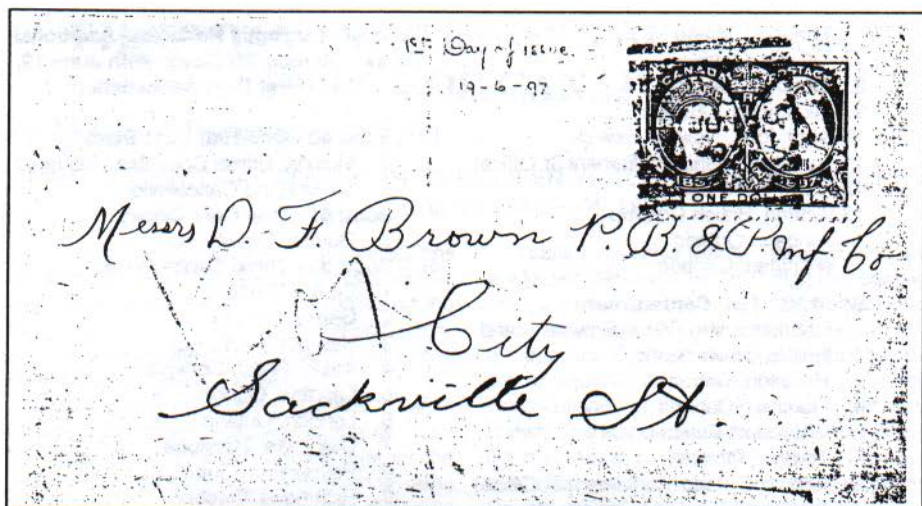 1st Day of issue.
19-6-97
CANADA POSTAGE
ONE DOLLAR
Messrs D. F. Brown P. B. & Co
City
Sackville St.